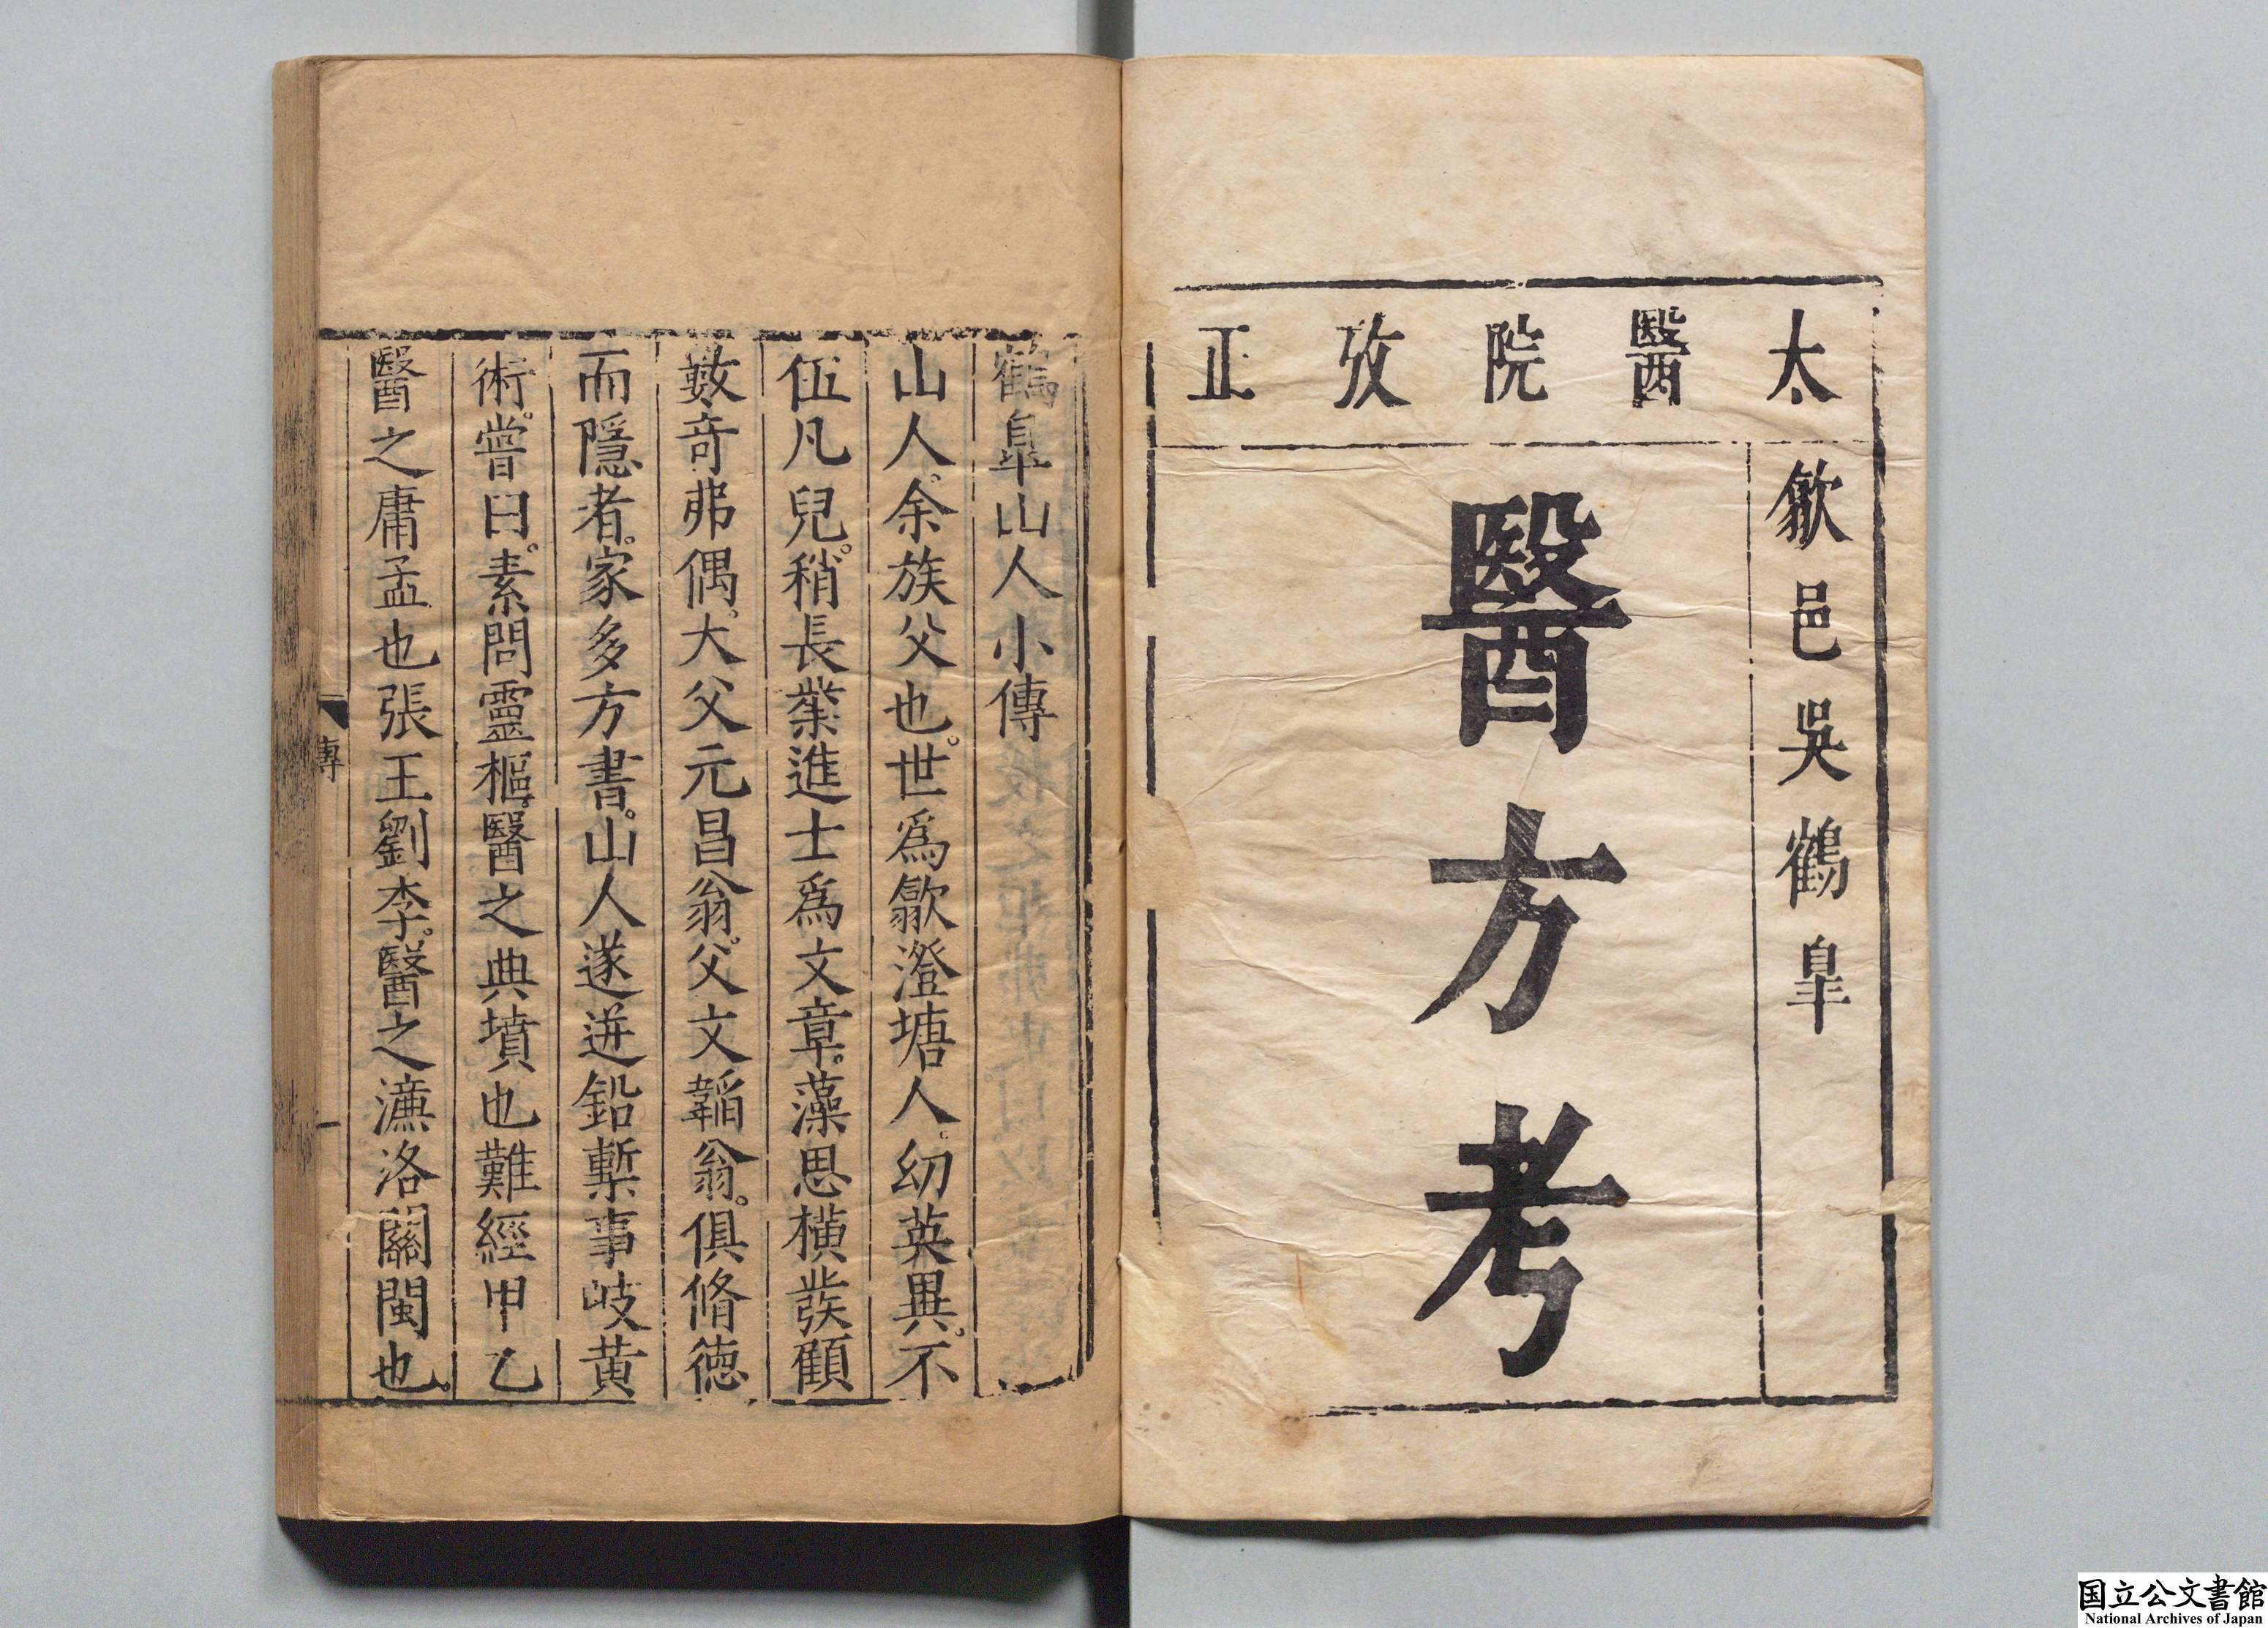 太醫院攷正
歙邑吳鶴皐
醫方考
鶴皐山人小傳
山人。余族父也。世爲歙澄塘人。幼英異。不
伍凡兒。稍長業進士爲文章。藻思橫發顧
數奇弗偶。大父元昌翁。父文韜翁。俱脩德
而隱者。家多方書。山人遂迸鉛槧事岐黃
術。嘗曰。素問靈樞。醫之典墳也難經甲乙
醫之庸孟也張王劉李。醫之濂洛關閩也。
傳
一
国立公文書館
National Archives of Japan